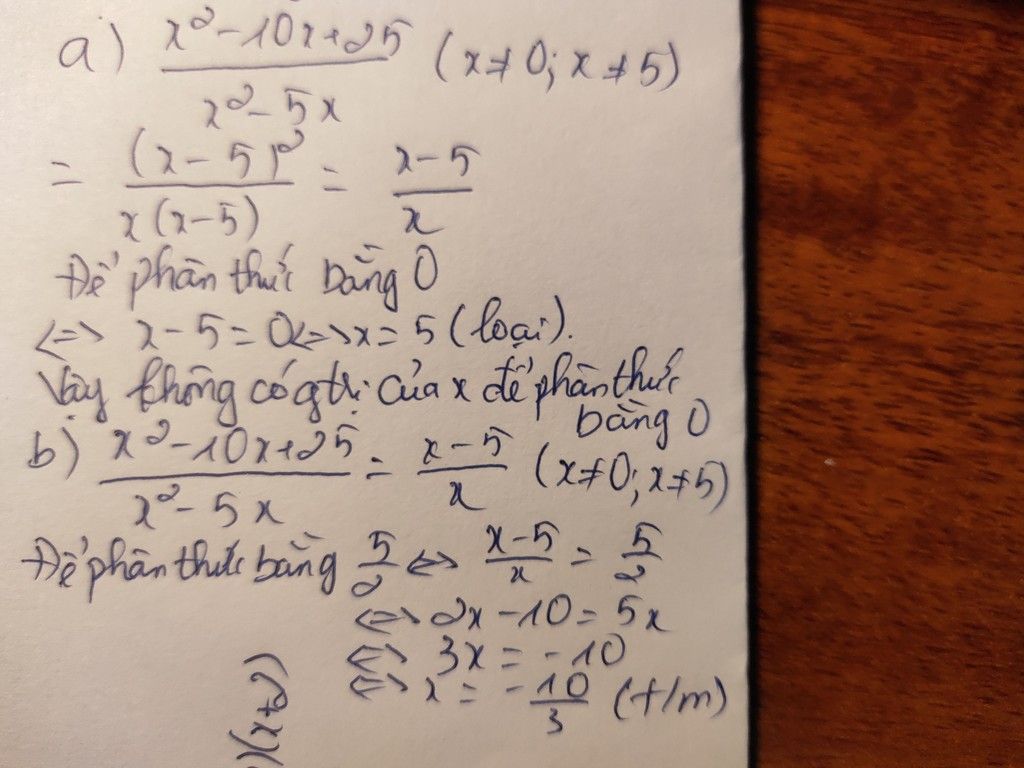 a) (x² - 10x + 25)/(x² - 5x) (x ≠ 0; x ≠ 5)
= (x - 5)²/(x(x - 5)) = (x - 5)/x
Để phân thức bằng 0
<=> x - 5 = 0 <=> x = 5 (loại).
Vậy không có gtrị của x để phân thức
bằng 0
b) (x² - 10x + 25)/(x² - 5x) = (x - 5)/x (x ≠ 0; x ≠ 5)
Để phân thức bằng 5/2 <=> (x - 5)/x = 5/2
<=> 2x - 10 = 5x
<=> 3x = -10
<=> x = -10/3 (t/m)
)(x+2)